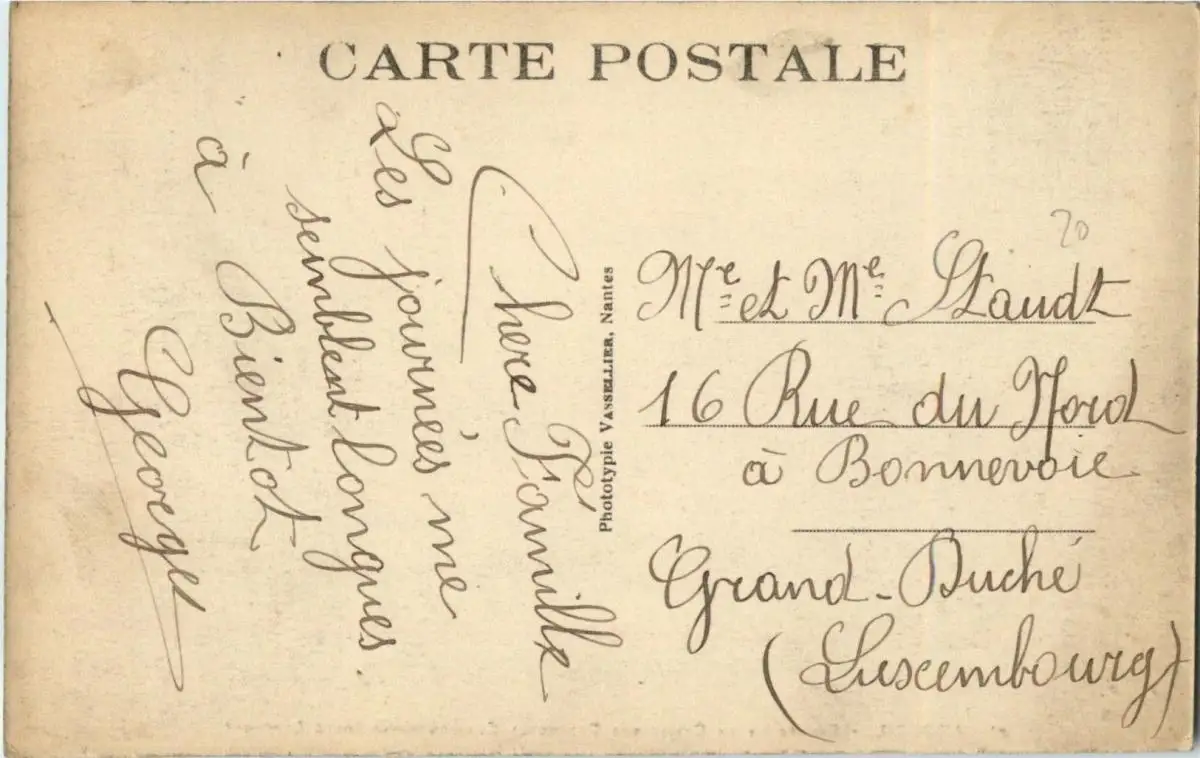 CARTE POSTALE
Chere Famille
Les journées me
semblent longues.
à Bientot
Georges
Phototypie VASSELLIER, Nantes
20
Mr et Me Staudt
16 Rue du Nord
à Bonnevoie
Grand-Duché
(Luxembourg)